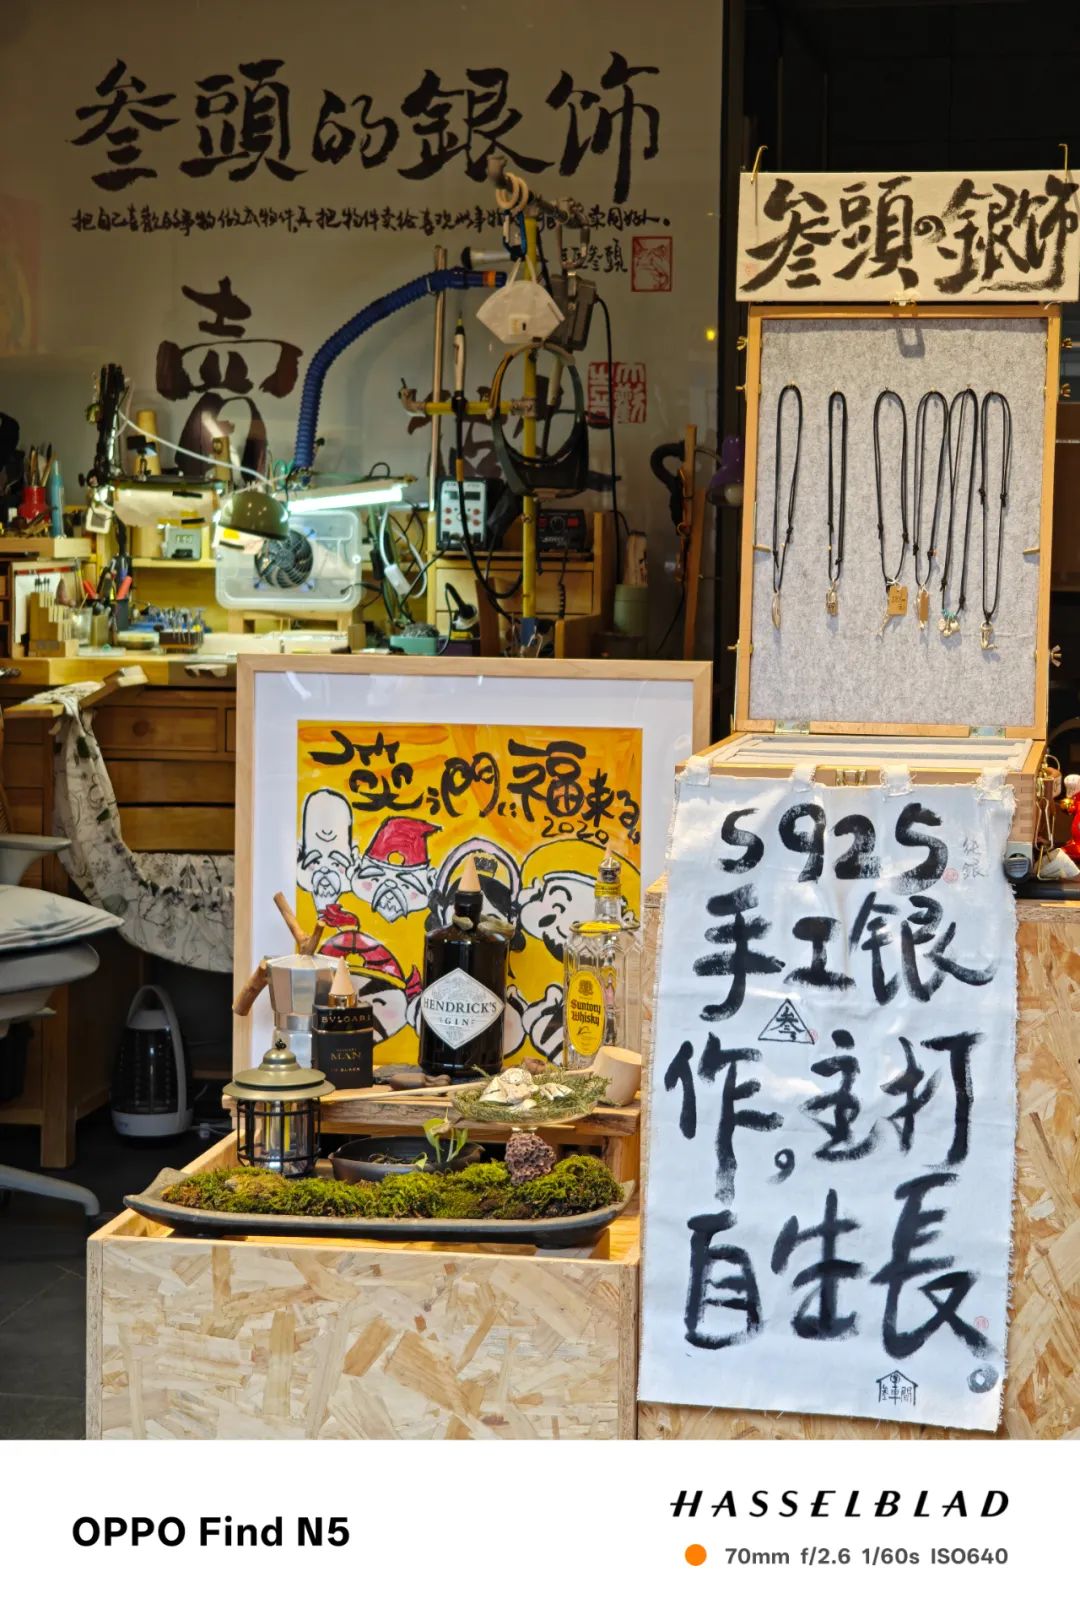 叁頭的銀饰
把自己喜歡的事物做成物件,再把物件卖给喜欢
叁頭
叁頭の銀饰
笑う門には福来る
2020
HENDRICK'S
GIN
Suntory
Whisky
BVLGARI
MAN
IN BLACK
S925
纯銀
手工銀
叁
作。主打
自生長。
OPPO Find N5
HASSELBLAD
70mm f/2.6 1/60s ISO640